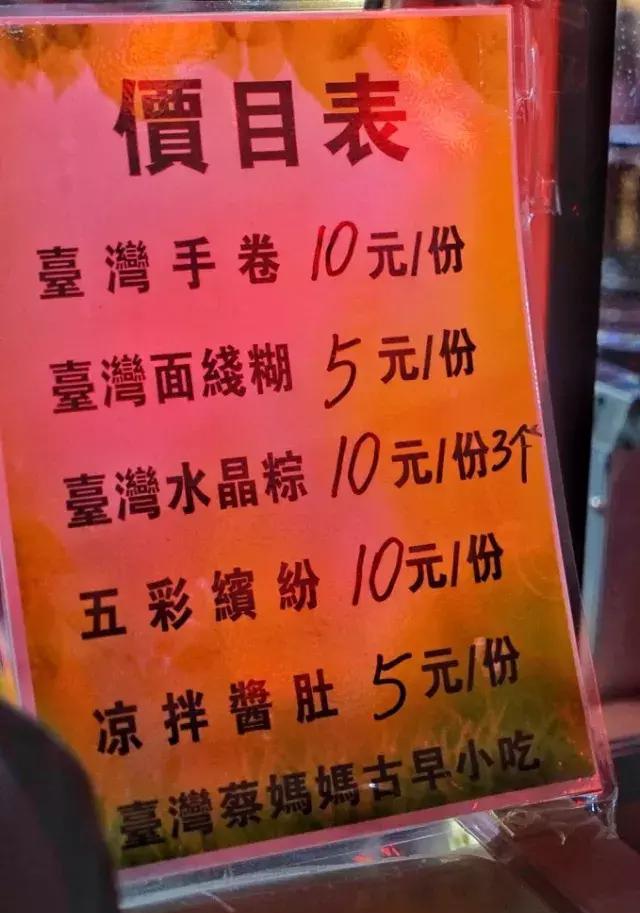 價目表
臺灣手卷 10元/份
臺灣面綫糊 5元/份
臺灣水晶粽 10元/份3个
五彩繽紛 10元/份
凉拌醬肚 5元/份
臺灣蔡媽媽古早小吃